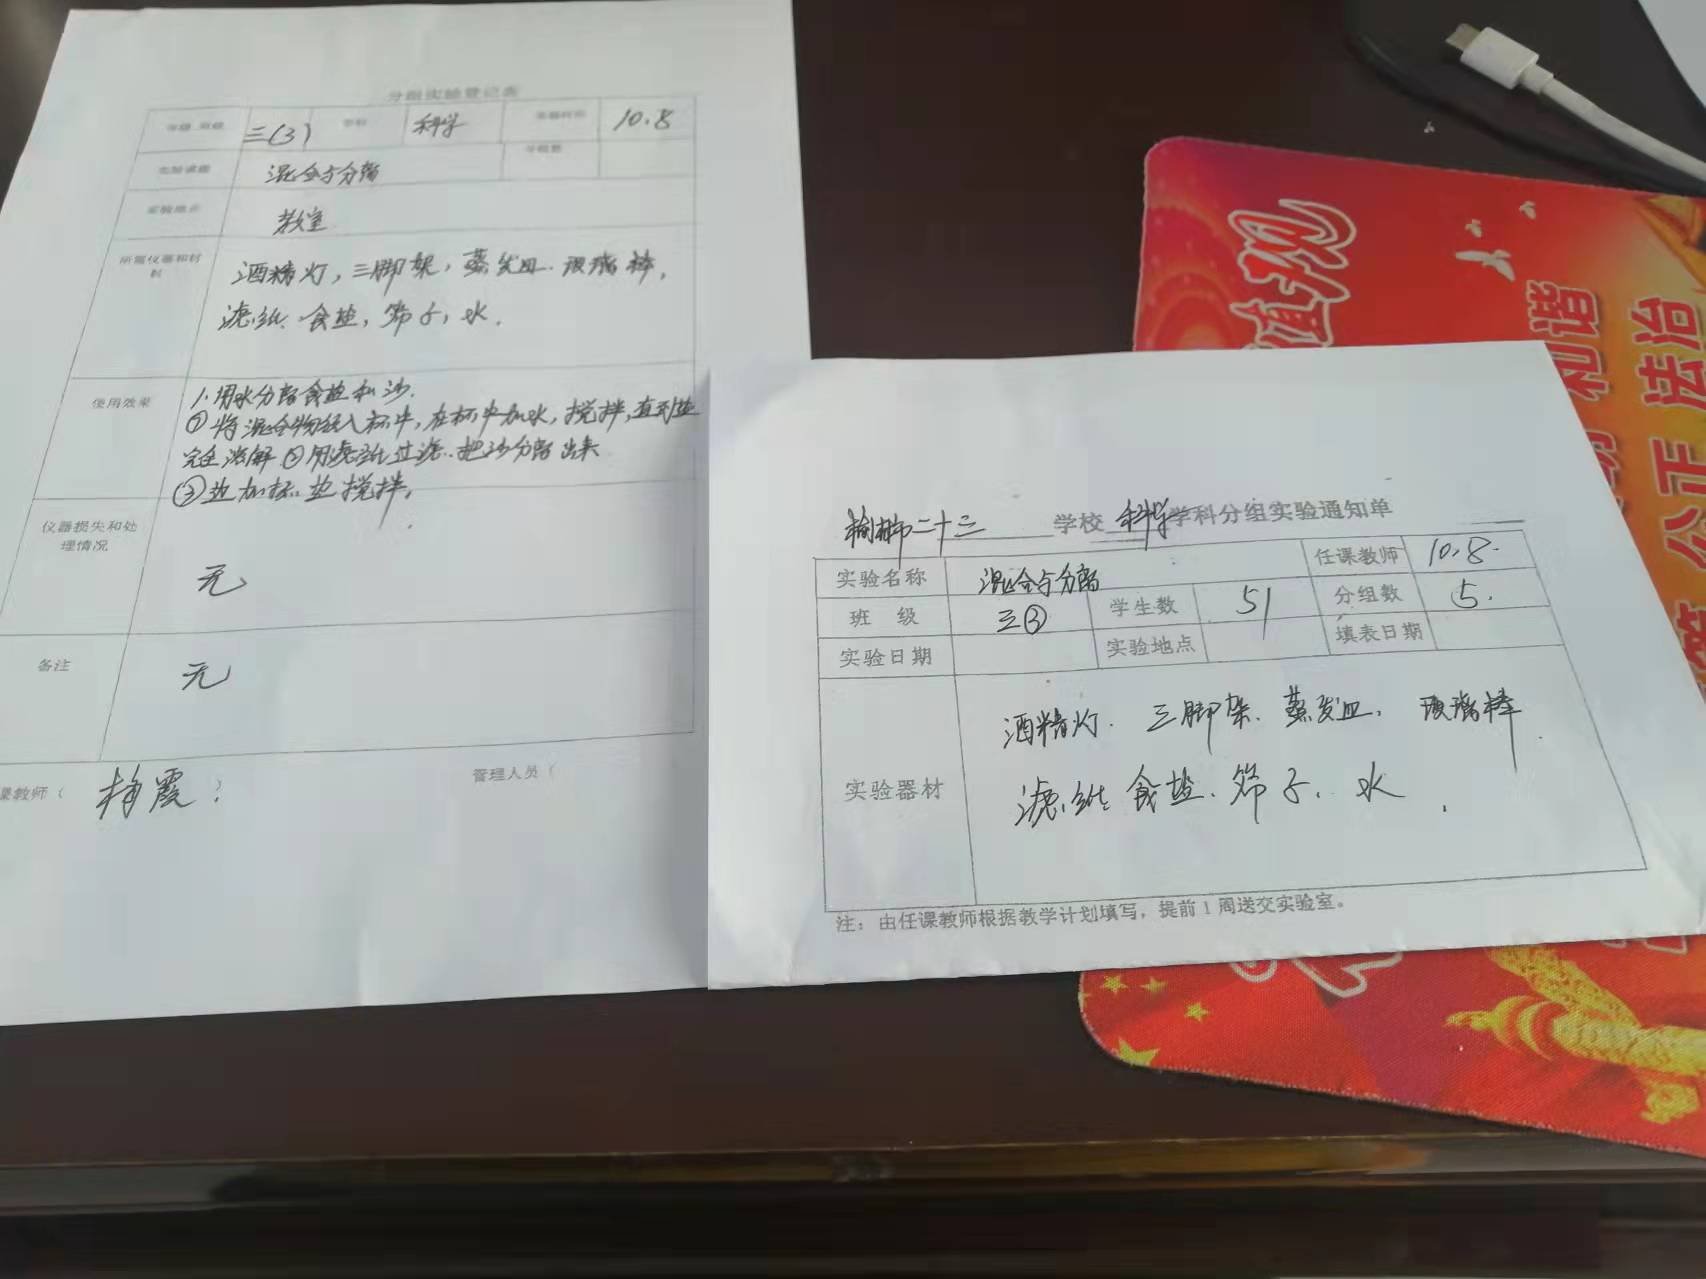 分组实验登记表
年级、班级 三(3) 学科 科学 实验时间 10.8
实验课题 混合与分离 分组数
实验地点 教室
所需仪器和材
料
酒精灯，三脚架，蒸发皿、玻璃棒，
滤纸、食盐，筛子，水．
使用效果
1．用水分离食盐和沙．
①将混合物放入杯中，在杯中加水，搅拌，直到盐
完全溶解 ②用滤纸过滤．把沙分离出来
③边加标．边搅拌．
仪器损失和处
理情况
无
备注
无
课教师（ 静霞 ）
管理人员（
榆树二十三 学校 科学学科分组实验通知单
实验名称 混合与分离 任课教师 10.8.
班 级 三③ 学生数 51 分组数 5.
实验日期 实验地点 填表日期
实验器材
酒精灯．三脚架．蒸发皿．玻璃棒
滤纸 食盐．筛子．水．
注：由任课教师根据教学计划填写，提前1周送交实验室。
值观
和谐
法治
公正